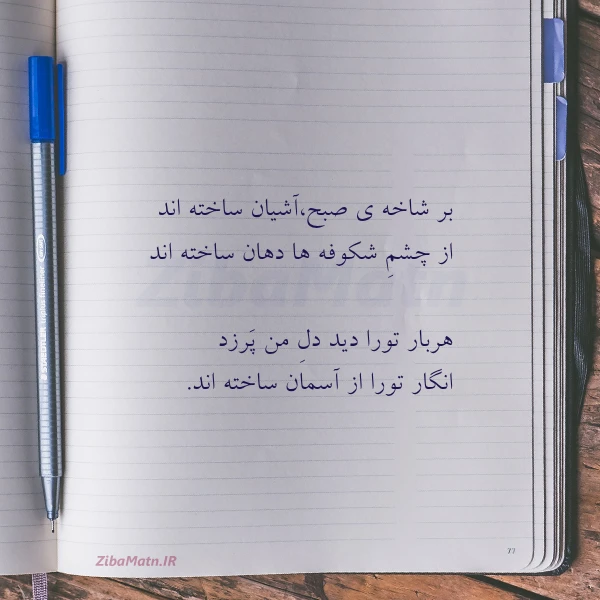 بر شاخه ی صبح،آشیان ساخته اند
از چشمِ شکوفه ها دهان ساخته اند
هربار تورا دید دلِ من پَرزد
انگار تورا از آسمان ساخته اند.
ZibaMatn
ZibaMatn.IR